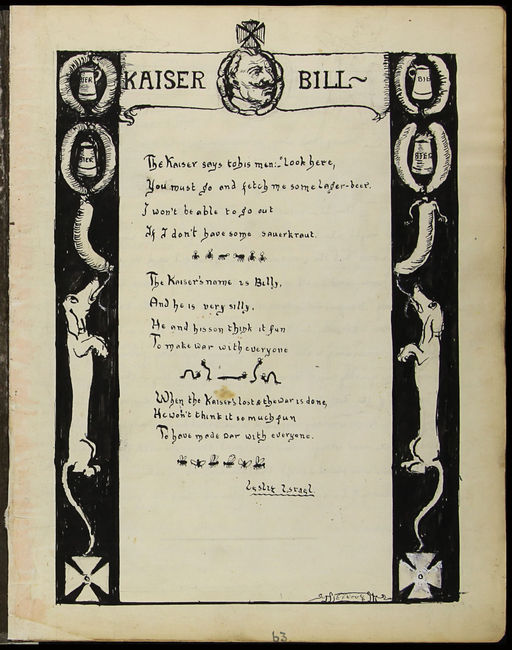 KAISER BILL~
BIER
BIER
BIER
BIER
The Kaiser says to his men:-"Look here,
You must go and fetch me some lager-beer.
I won't be able to go out
If I don't have some sauerkraut.
The Kaiser's name is Billy,
And he is very silly,
He and his son think it fun
To make war with everyone
When the Kaiser's lost & the war is done,
He won't think it so much fun
To have made war with everyone.
Leslie Israel
63